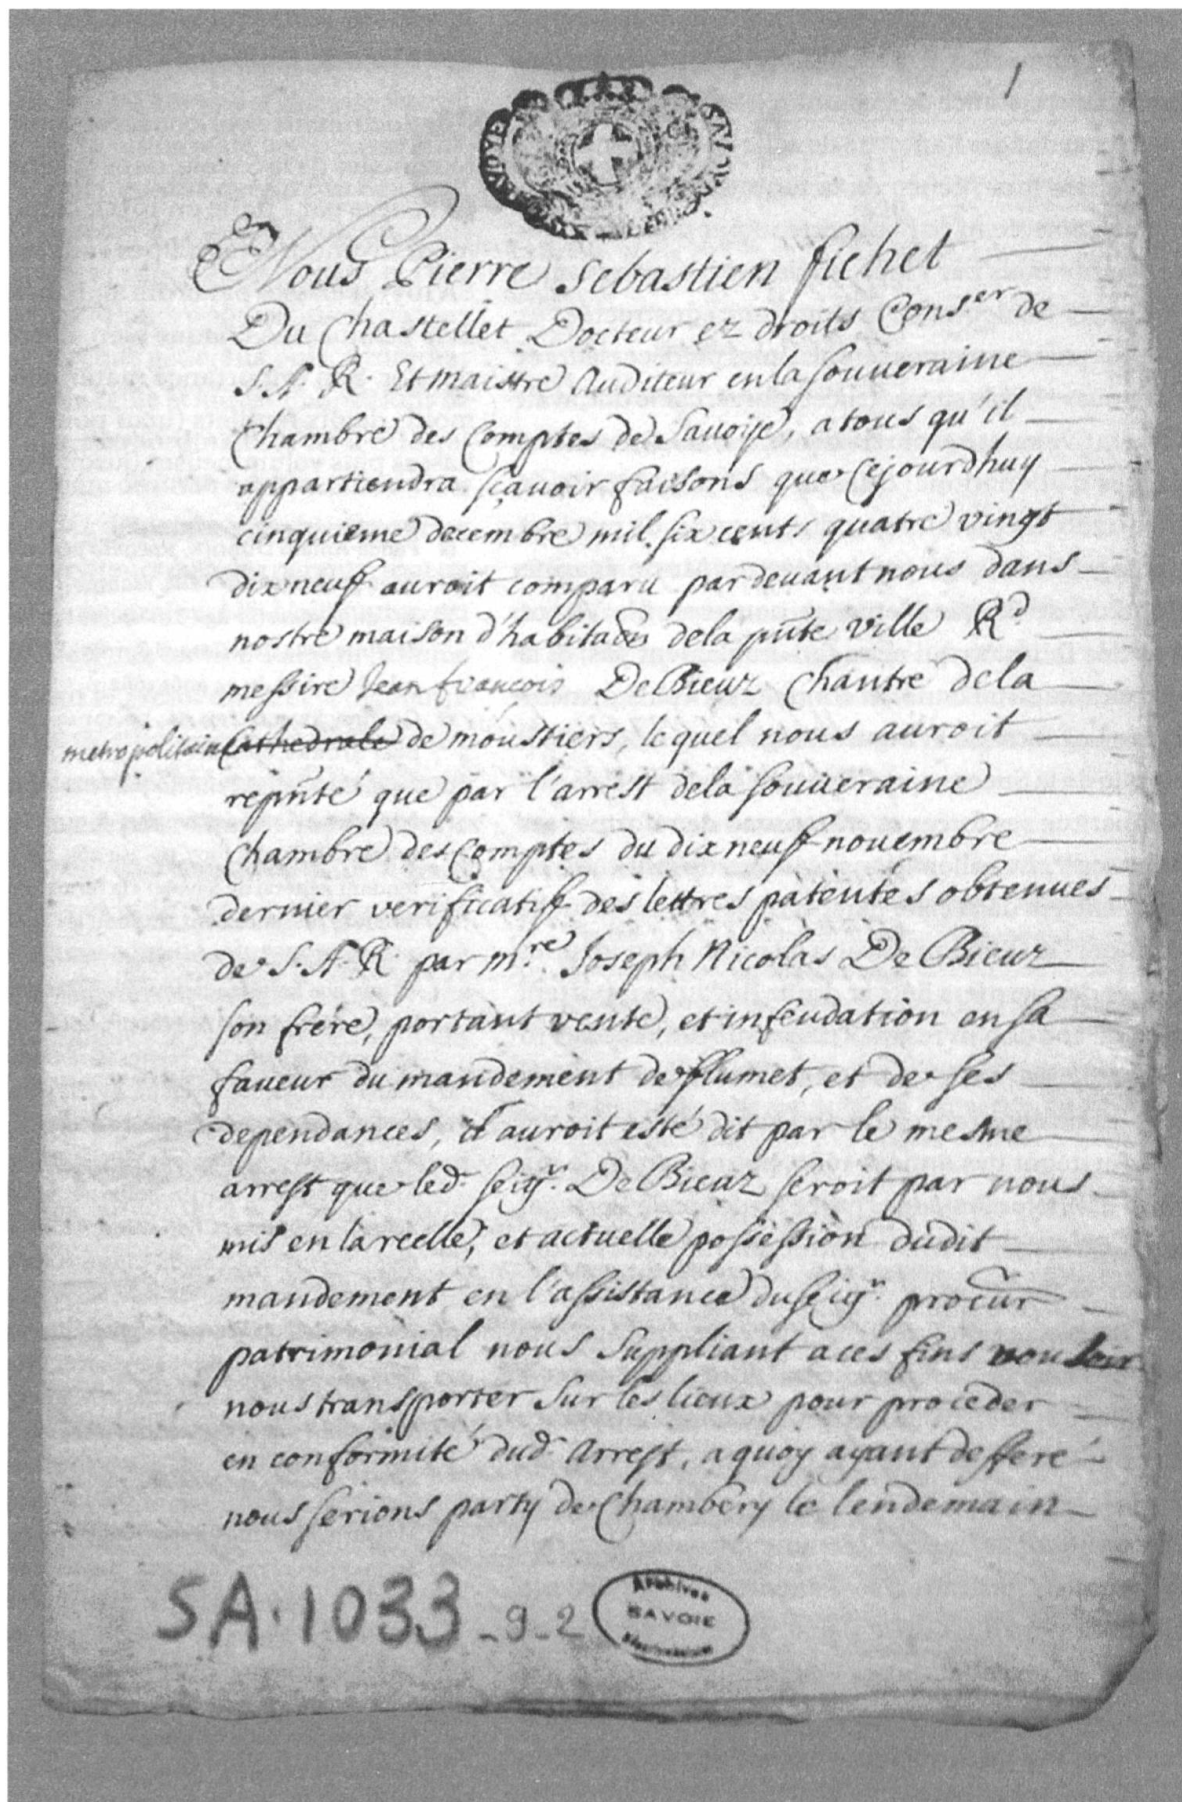 1
Nous Pierre Sebastien fichet
Du Chastellet Docteur ez droits Cons.er de
S. A. R. Et maistre Auditeur en la souueraine
Chambre des Comptes de Sauoye, a tous qu'il
appartiendra sçauoir faisons que cejourdhuy
cinquieme decembre mil six cents quatre vingt
dix neuff auroit comparu par deuant nous dans
nostre maison d'habitaõn de la pñte ville R.d
messire Jean françois De Bieux Chantre de la
metropolitaine Cathedrale de moustiers, lequel nous auroit
repñté que par l'arrest de la souueraine
Chambre des Comptes du dix neuff nouembre
dernier verificatiff des lettres patentes obtenues
de S. A. R. par m.re Joseph Nicolas De Bieux
son frere, portant vente, et infeudation en sa
faueur du mandement de flumet, et de ses
dependances, il auroit esté dit par le mesme
arrest que led. seig.r De Bieux seroit par nous
mis en la reelle, et actuelle possession dudit
mandement en l'assistance du seig.r procur
patrimonial nous suppliant a ces fins vouloir
nous transporter sur les lieux pour proceder
en conformité dud. Arrest, a quoy ayant defferé
nous serions party de Chambery le lendemain
SA.1033_9_2
Archives
SAVOIE